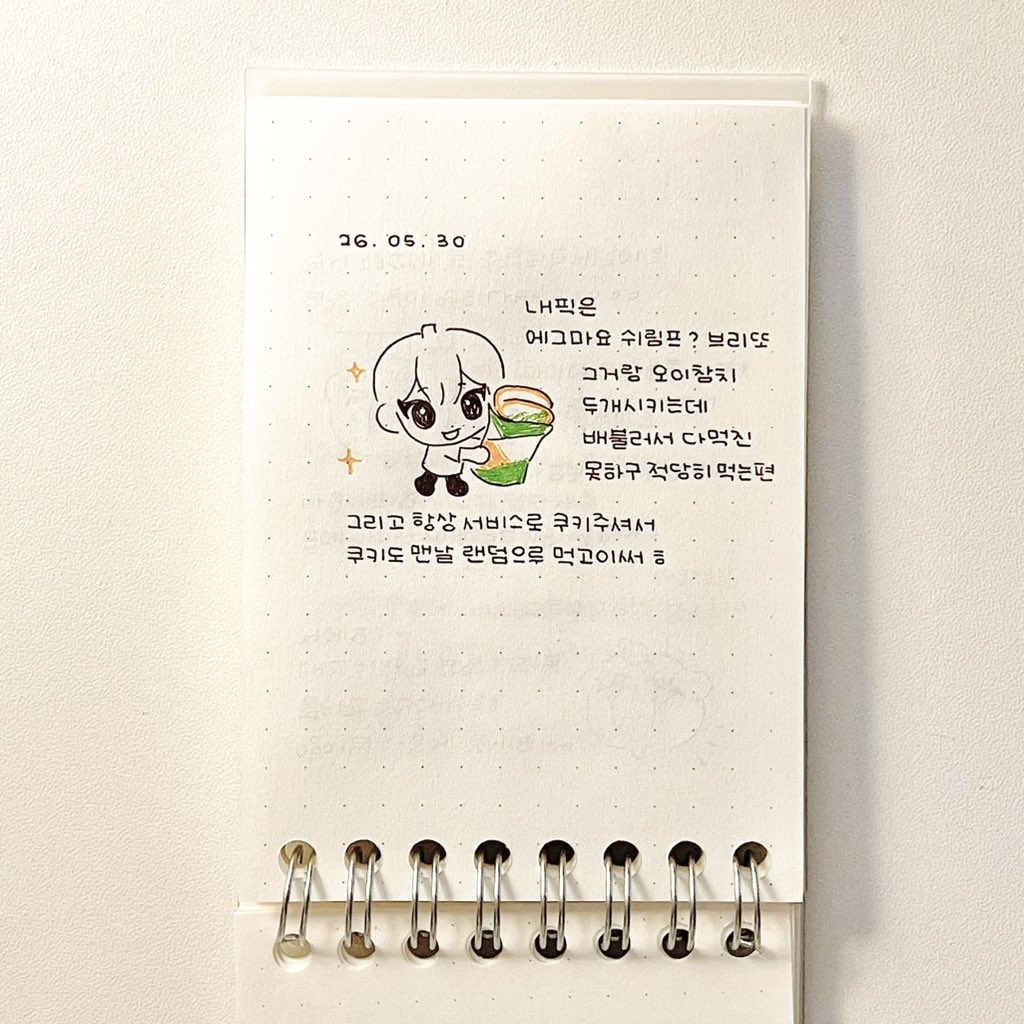 26. 05. 30
내픽은
에그마요 쉬림프? 브리또
그거랑 오이참치
두개시키는데
배불러서 다먹진
못하구 적당히 먹는편
그리고 항상 서비스로 쿠키주셔서
쿠키도 맨날 랜덤으루 먹고이써 ㅎ